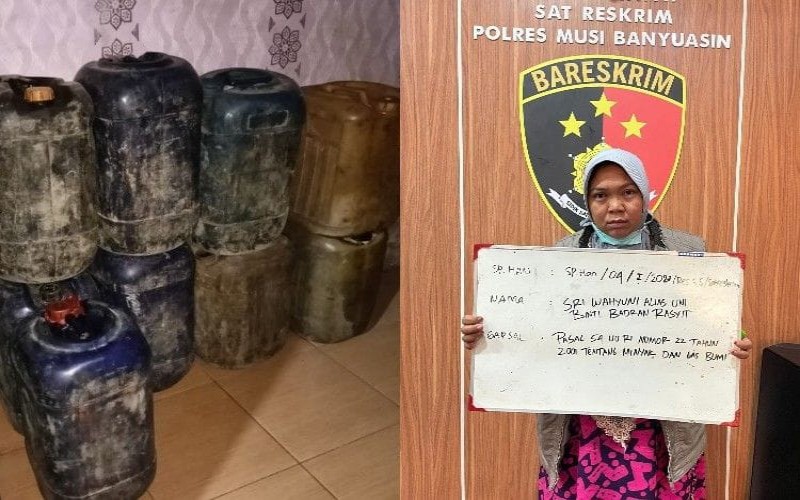 SAT RESKRIM
POLRES MUSI BANYUASIN
BARESKRIM
SP. HAN : SP. Han / 04 / I /
NAMA : SRI WAHYUNI ALIAS UNI
BINTI BADRAN RASYIT
: PASAL 54 UU RI NOMOR 22 TAHUN
2001 TENTANG MINYAK DAN GAS BUMI